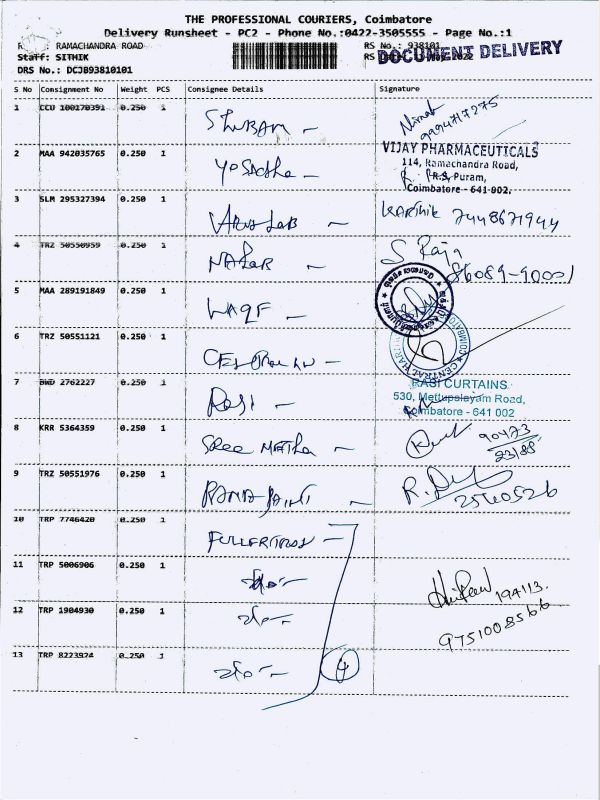 THE PROFESSIONAL COURIERS, Coimbatore
Delivery Runsheet - PC2 - Phone No.:0422-3505555 - Page No.:1
RAMACHANDRA ROAD
RS No.: 938101
Staff: SITHIK
RS
2022
DOCUMENT DELIVERY
DRS No.: DCJB93810101
S No Consignment No Weight PCS Consignee Details Signature
1 CCU 100170391 0.250 1 SHUBAM -
9994717275
2 MAA 942035765 0.250 1 YOSADHA -
VIJAY PHARMACEUTICALS
114, Ramachandra Road,
R.S. Puram,
Coimbatore - 641 002.
3 SLM 295327394 0.250 1
KARTHIK 7448671944
4 TRZ 50550959 0.250 1
S Raja
86089-90001
5 MAA 289191849 0.250 1 WAQF -
6 TRZ 50551121 0.250 1
7 BWD 2762227 0.250 1 RASI -
RASI CURTAINS
530, Mettupalayam Road,
Coimbatore - 641 002
8 KRR 5364359 0.250 1 SREE
90473
23188
9 TRZ 50551976 0.250 1 RAMA PAINT -
2540526
10 TRP 7746420 0.250 1 FULLERTRON -
11 TRP 5006906 0.250 1
194113.
12 TRP 1904930 0.250 1
9751008566
13 TRP 8223924 0.250 1
4